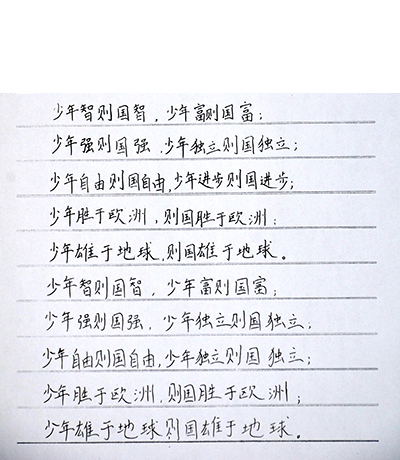 少年智则国智，少年富则国富；
少年强则国强，少年独立则国独立；
少年自由则国自由，少年进步则国进步；
少年胜于欧洲，则国胜于欧洲；
少年雄于地球，则国雄于地球。
少年智则国智，少年富则国富；
少年强则国强，少年独立则国独立；
少年自由则国自由，少年独立则国独立；
少年胜于欧洲，则国胜于欧洲；
少年雄于地球则国雄于地球。